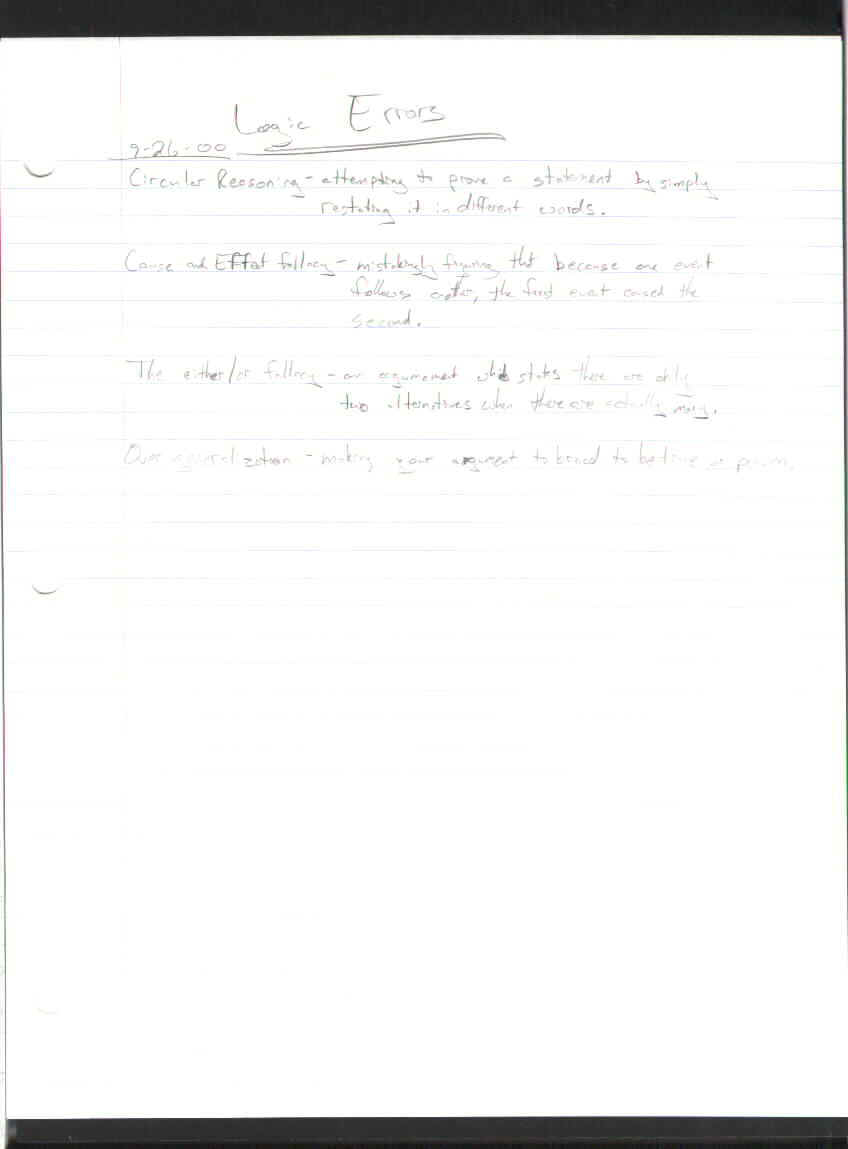 Logic Errors
9-26-00
Circular Reasoning - attempting to prove a statement by simply
restating it in different words.
Cause and Effect fallacy - mistakenly figuring that because one event
follows another, the first event caused the
second.
The either/or fallacy - an argument which states there are only
two alternatives when there are actually many.
Over generalization - making your argument to broad to be